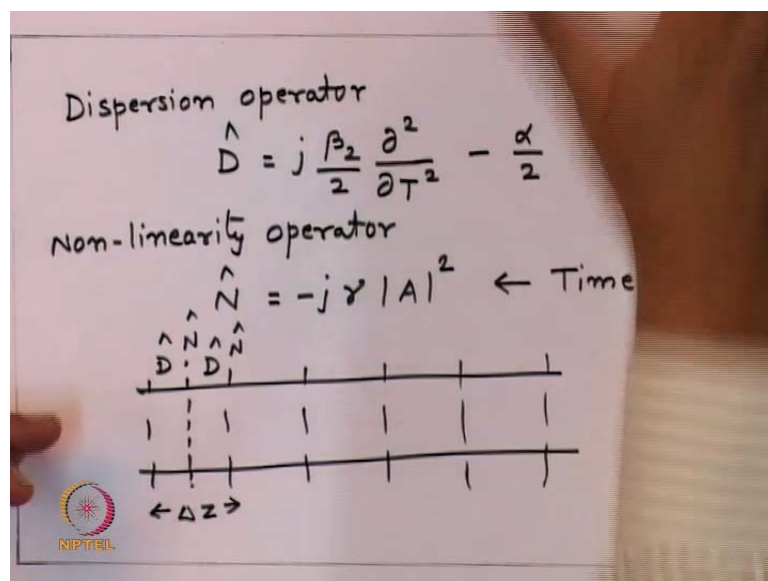 Dispersion operator
D̂ = j β₂/2 ∂²/∂T² - α/2
Non-linearity operator
N̂ = -j γ |A|² ← Time
D̂ N̂ D̂ N̂
← Δz →
NPTEL